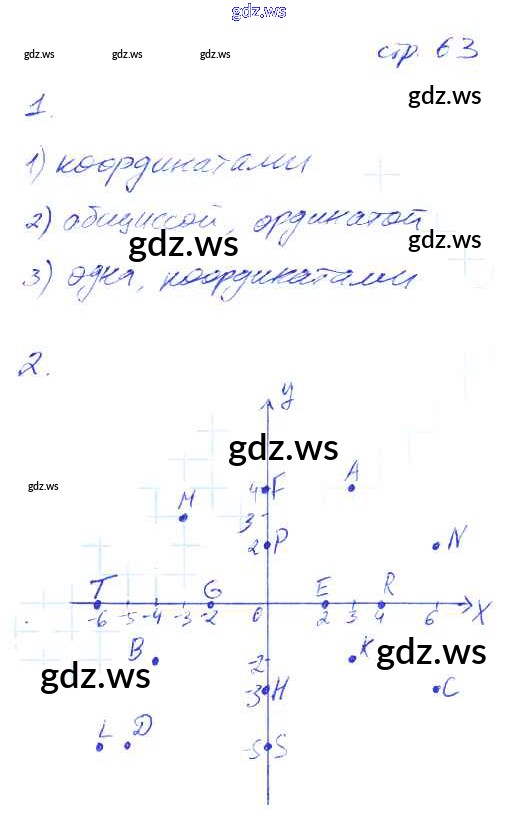 gdz.ws
стр. 63
gdz.ws gdz.ws gdz.ws
gdz.ws
1.
1) координатами
2) абсциссой, ординатой
gdz.ws gdz.ws
3) одна, координатами
2.
y
gdz.ws
A
gdz.ws
4 F
M
3
2 P
N
T G E R
-6 -5 -4 -3 -2 0 2 3 4 6 X
B -2 K
gdz.ws gdz.ws
-3 H C
L D
-5 S